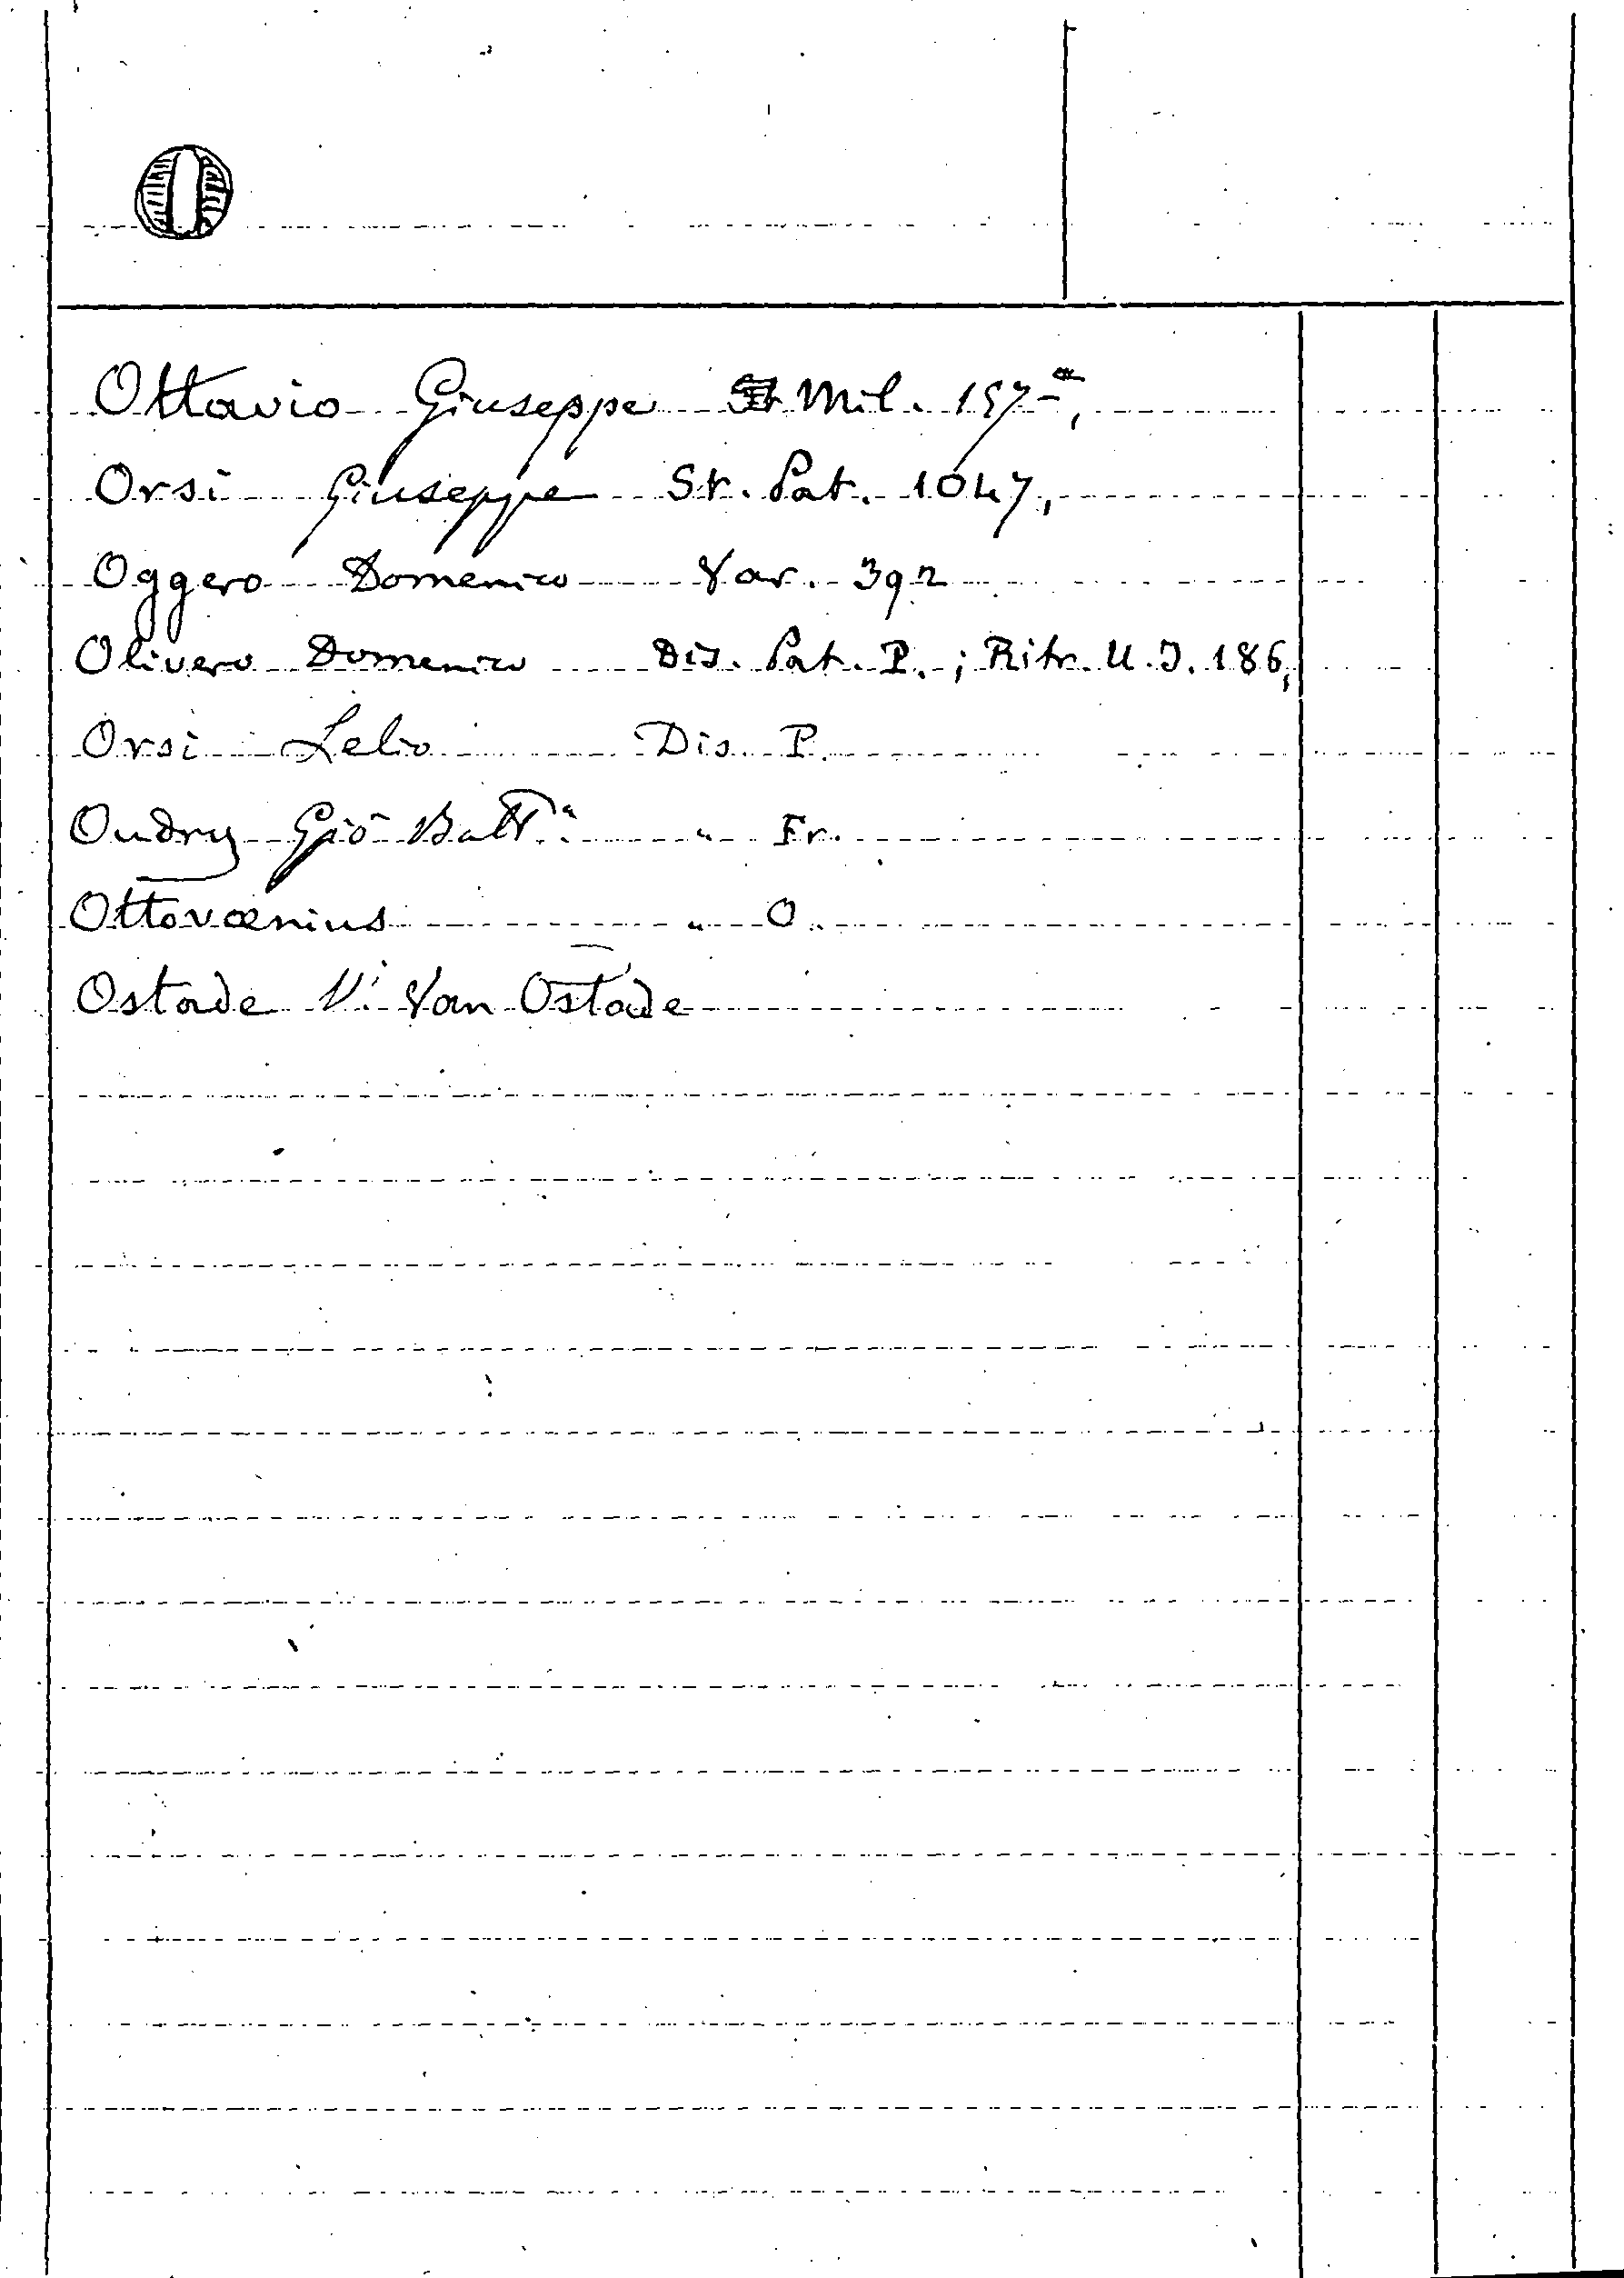 O
Ottavio Giuseppe Mil. 157-a,
Orsi Giuseppe St. Pat. 1047,
Oggero Domenico Var. 392
Olivero Domenico Dis. Pat. P. ; Ritr. U. I. 186,
Orsi Lelio Dis. P.
Oudry Giō Batta " Fr.
Ottovœnius " O.
Ostade V. Van Ostade